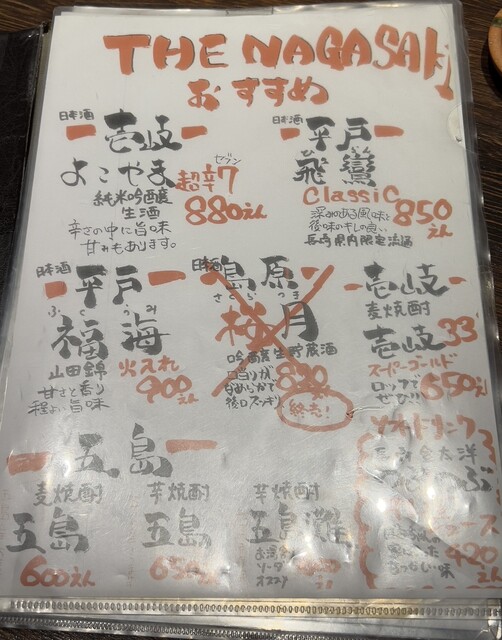 THE NAGASAKI
おすすめ
日本酒
ー壱岐ー
よこやま
純米吟醸
生酒
超辛7
セブン
880えん
辛さの中に旨味
甘みもあります。
日本酒
ー平戸ー
飛鸞
Classic
深みのある風味と
後味のキレの良い
長崎県内限定流通
850えん
日本酒
ー平戸ー
ふくうみ
福海
山田錦
火入れ
甘さと香り
程よい旨味
900えん
日本酒
島原
さくらつき
桜月
吟醸生貯蔵酒
口当りが
なめらかで
後口スッキリ
820
終売!
ー壱岐ー
麦焼酎
壱岐
33°
スーパーゴールド
ロックで
ぜひ!!
650えん
ソフトドリンク
ー五島ー
麦焼酎
五島
600えん
芋焼酎
五島
650えん
芋焼酎
五島灘
お湯割
ソーダ
オススメ
420えん